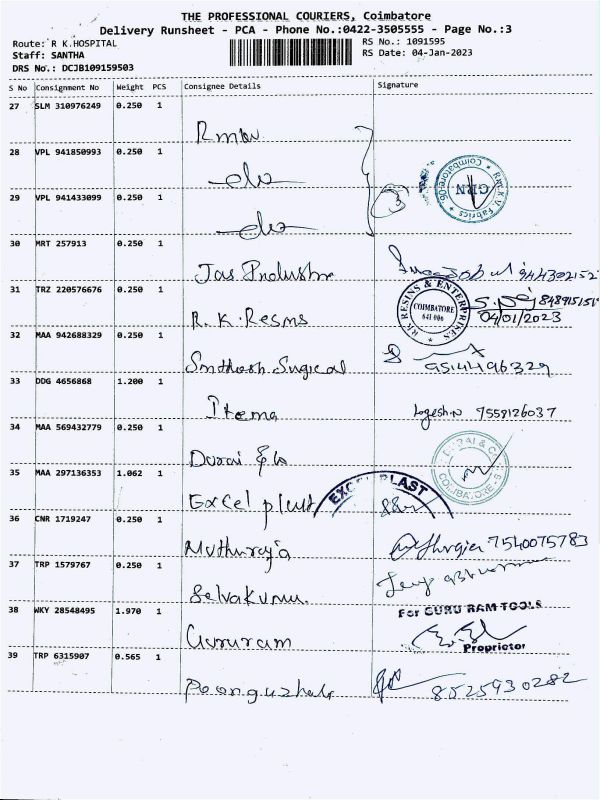 THE PROFESSIONAL COURIERS, Coimbatore
Delivery Runsheet - PCA - Phone No.:0422-3505555 - Page No.:3
Route: R K.HOSPITAL
RS No.: 1091595
Staff: SANTHA
RS Date: 04-Jan-2023
DRS No.: DCJB109159503
S No Consignment No Weight PCS Consignee Details Signature
27 SLM 310976249 0.250 1
28 VPL 941850993 0.250 1
29 VPL 941433099 0.250 1
3
Coimbatore-06
GRN
Fabrics
30 MRT 257913 0.250 1
Jas
31 TRZ 220576676 0.250 1
R.K. Resins
RK RESINS & ENTERPRISES
COIMBATORE
641 006
04/01/2023
32 MAA 942688329 0.250 1
Surgical
9514496329
33 DDG 4656868 1.200 1
Itema
Logesh.N 7558126037
34 MAA 569432779 0.250 1
Durai & Co
DURAI & CO
COIMBATORE-6
35 MAA 297136353 1.062 1
Excel plast
EXCEL PLAST
36 CNR 1719247 0.250 1
Muthuraja
7540075783
37 TRP 1579767 0.250 1
Selvakumar
38 WKY 28548495 1.970 1
Gururam
For GURU RAM TOOLS
Proprietor
39 TRP 6315907 0.565 1
Poonguzhali
8525930282